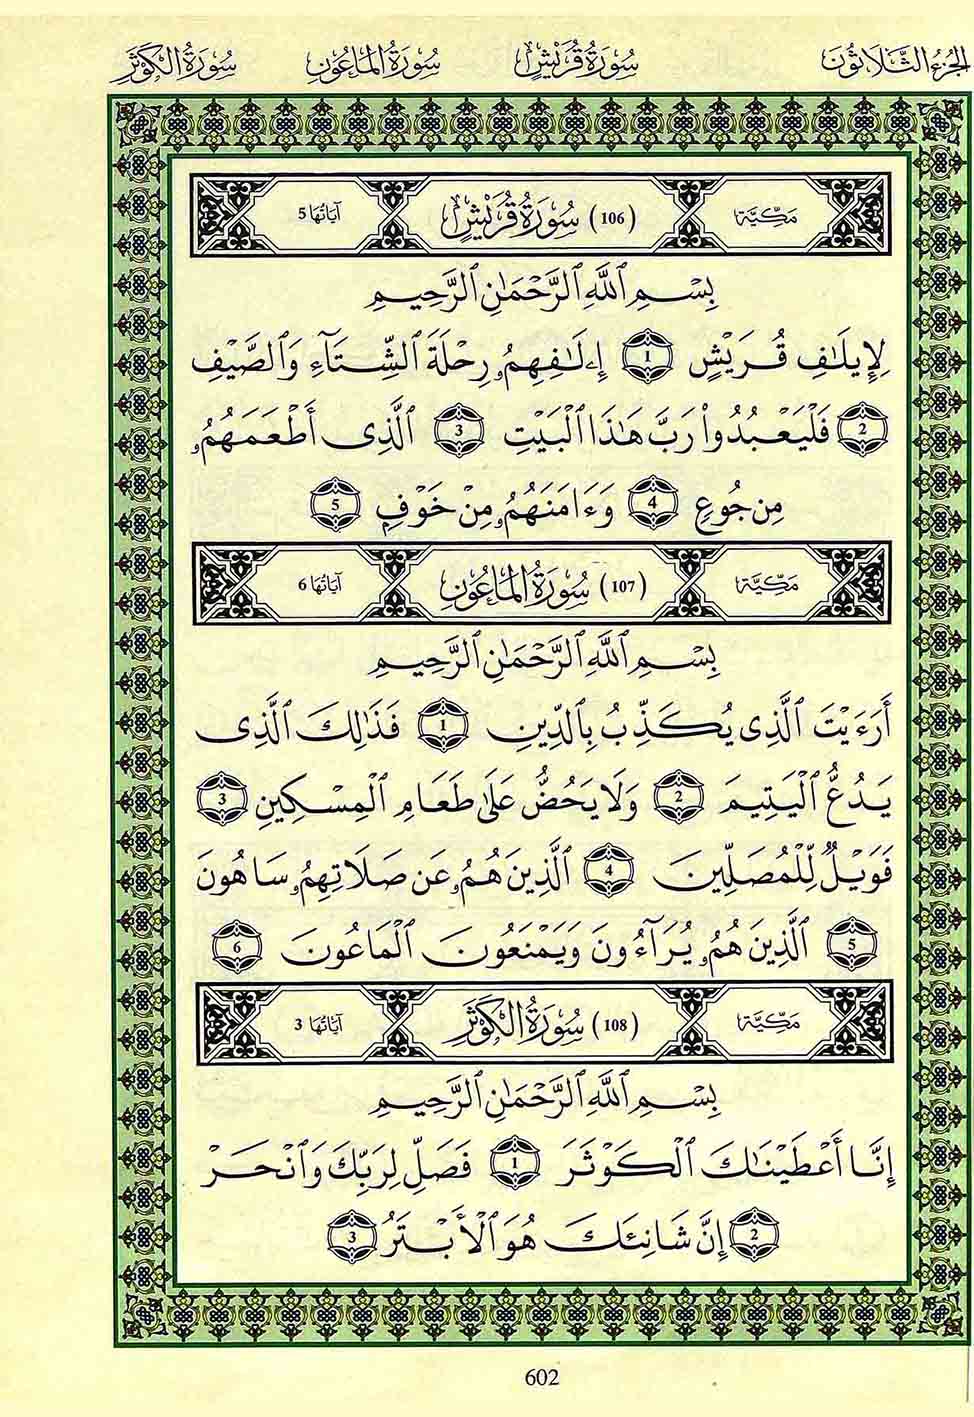 الجُزءُ الثَّلَاثُونَ سُورَةُ قُرَيْشٍ سُورَةُ المَاعُونِ سُورَةُ الكَوْثَرِ
مَكِّيَّة (106) سُورَةُ قُرَيْشٍ آيَاتُهَا 5
بِسْمِ ٱللَّهِ ٱلرَّحْمَٰنِ ٱلرَّحِيمِ
لِإِيلَٰفِ قُرَيْشٍ 1 إِۦلَٰفِهِمُۥ رِحْلَةَ ٱلشِّتَآءِ وَٱلصَّيْفِ
2 فَلْيَعْبُدُواْ رَبَّ هَٰذَا ٱلْبَيْتِ 3 ٱلَّذِى أَطْعَمَهُمُۥ
مِن جُوعٍ 4 وَءَامَنَهُمُۥ مِنْ خَوْفٍ 5
مَكِّيَّة (107) سُورَةُ المَاعُونِ آيَاتُهَا 6
بِسْمِ ٱللَّهِ ٱلرَّحْمَٰنِ ٱلرَّحِيمِ
أَرَءَيْتَ ٱلَّذِى يُكَذِّبُ بِٱلدِّينِ 1 فَذَٰلِكَ ٱلَّذِى
يَدُعُّ ٱلْيَتِيمَ 2 وَلَا يَحُضُّ عَلَىٰ طَعَامِ ٱلْمِسْكِينِ 3
فَوَيْلٌ لِّلْمُصَلِّينَ 4 ٱلَّذِينَ هُمُۥ عَن صَلَاتِهِمُۥ سَاهُونَ
5 ٱلَّذِينَ هُمُۥ يُرَآءُونَ وَيَمْنَعُونَ ٱلْمَاعُونَ 6
مَكِّيَّة (108) سُورَةُ الكَوْثَرِ آيَاتُهَا 3
بِسْمِ ٱللَّهِ ٱلرَّحْمَٰنِ ٱلرَّحِيمِ
إِنَّا أَعْطَيْنَٰكَ ٱلْكَوْثَرَ 1 فَصَلِّ لِرَبِّكَ وَٱنْحَرْ
2 إِنَّ شَانِئَكَ هُوَ ٱلْأَبْتَرُ 3
602